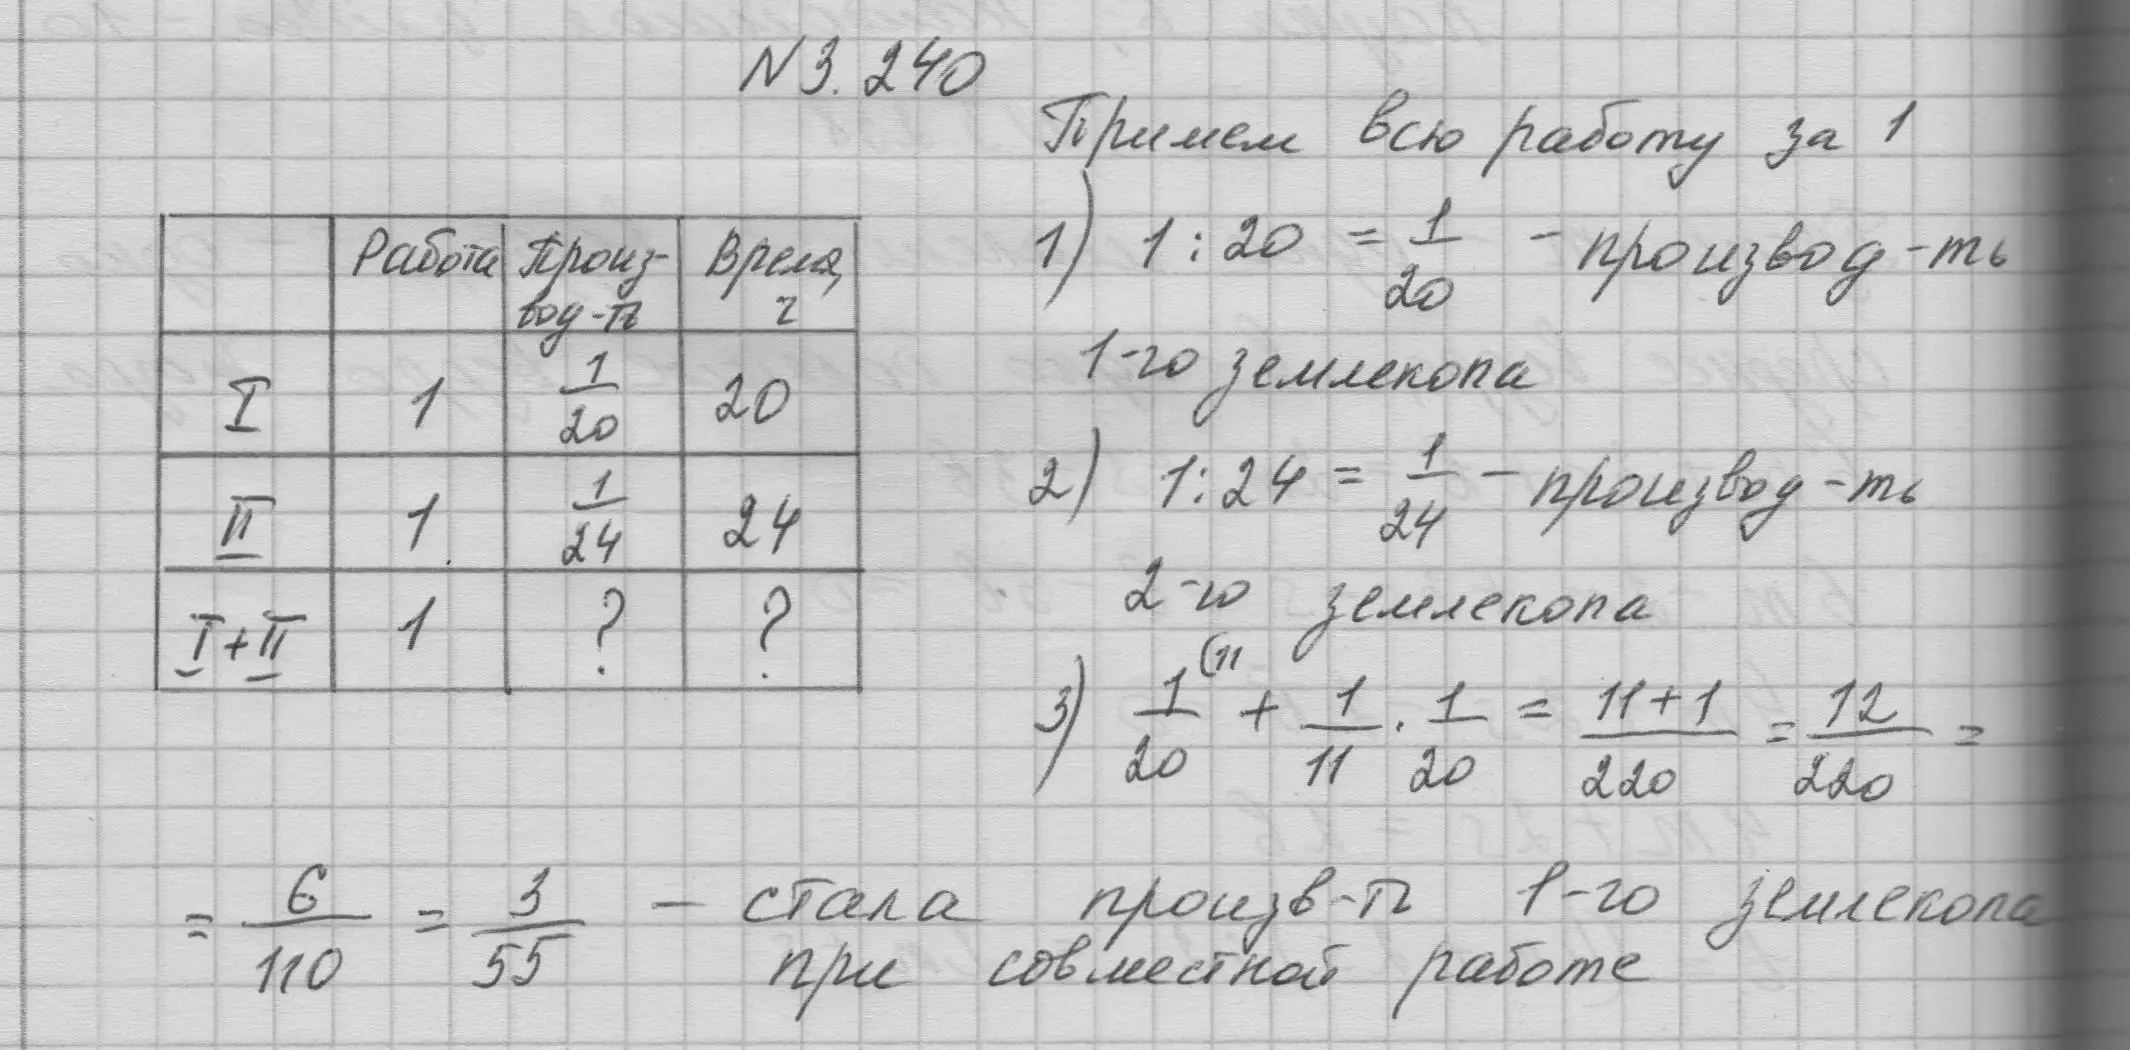 N 3.240
Примем всю работу за 1
Работа Произ- Время,
вод-ть ч
I 1 1/20 20
II 1 1/24 24
I+II 1 ? ?
1) 1 : 20 = 1/20 - производ-ть
1-го землекопа
2) 1 : 24 = 1/24 - производ-ть
2-го землекопа
3) 1/20 (11 + 1/11 · 1/20 = 11+1/220 = 12/220 =
= 6/110 = 3/55 - стала произв-ть 1-го землекопа
при совместной работе